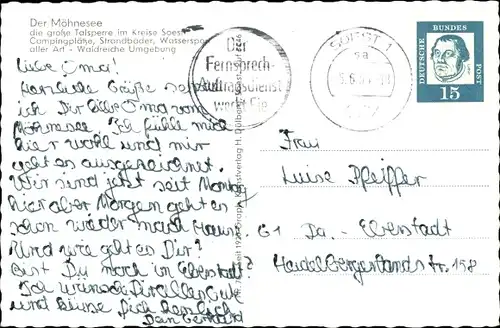 Der Möhnesee
die große Talsperre im Kreise Soest
Campingplätze, Strandbäder, Wassersport
aller Art - Waldreiche Umgebung
Liebe Oma!
Herzliche Grüße sendet
ich Dir liebe Oma vom
Möhnesee Ich fühle mich
hier wohl und mir
geht es ausgezeichnet.
Wir sind jetzt seit Montag
hier aber Morgen geht es
schon wieder nach Hause
Und wie geht es Dir?
Bist Du noch in Eberstadt
Ich wünsche Dir alles Gute
und küsse Dich herzlich
Dein Gerhard
Der
Fernsprech-
Auftragsdienst
weckt Sie
SOEST 1
DEUTSCHE
BUNDES
POST
15
Frau
Luise Pfeiffer
61 Da.- Eberstadt
Heidelbergerlandstr. 198